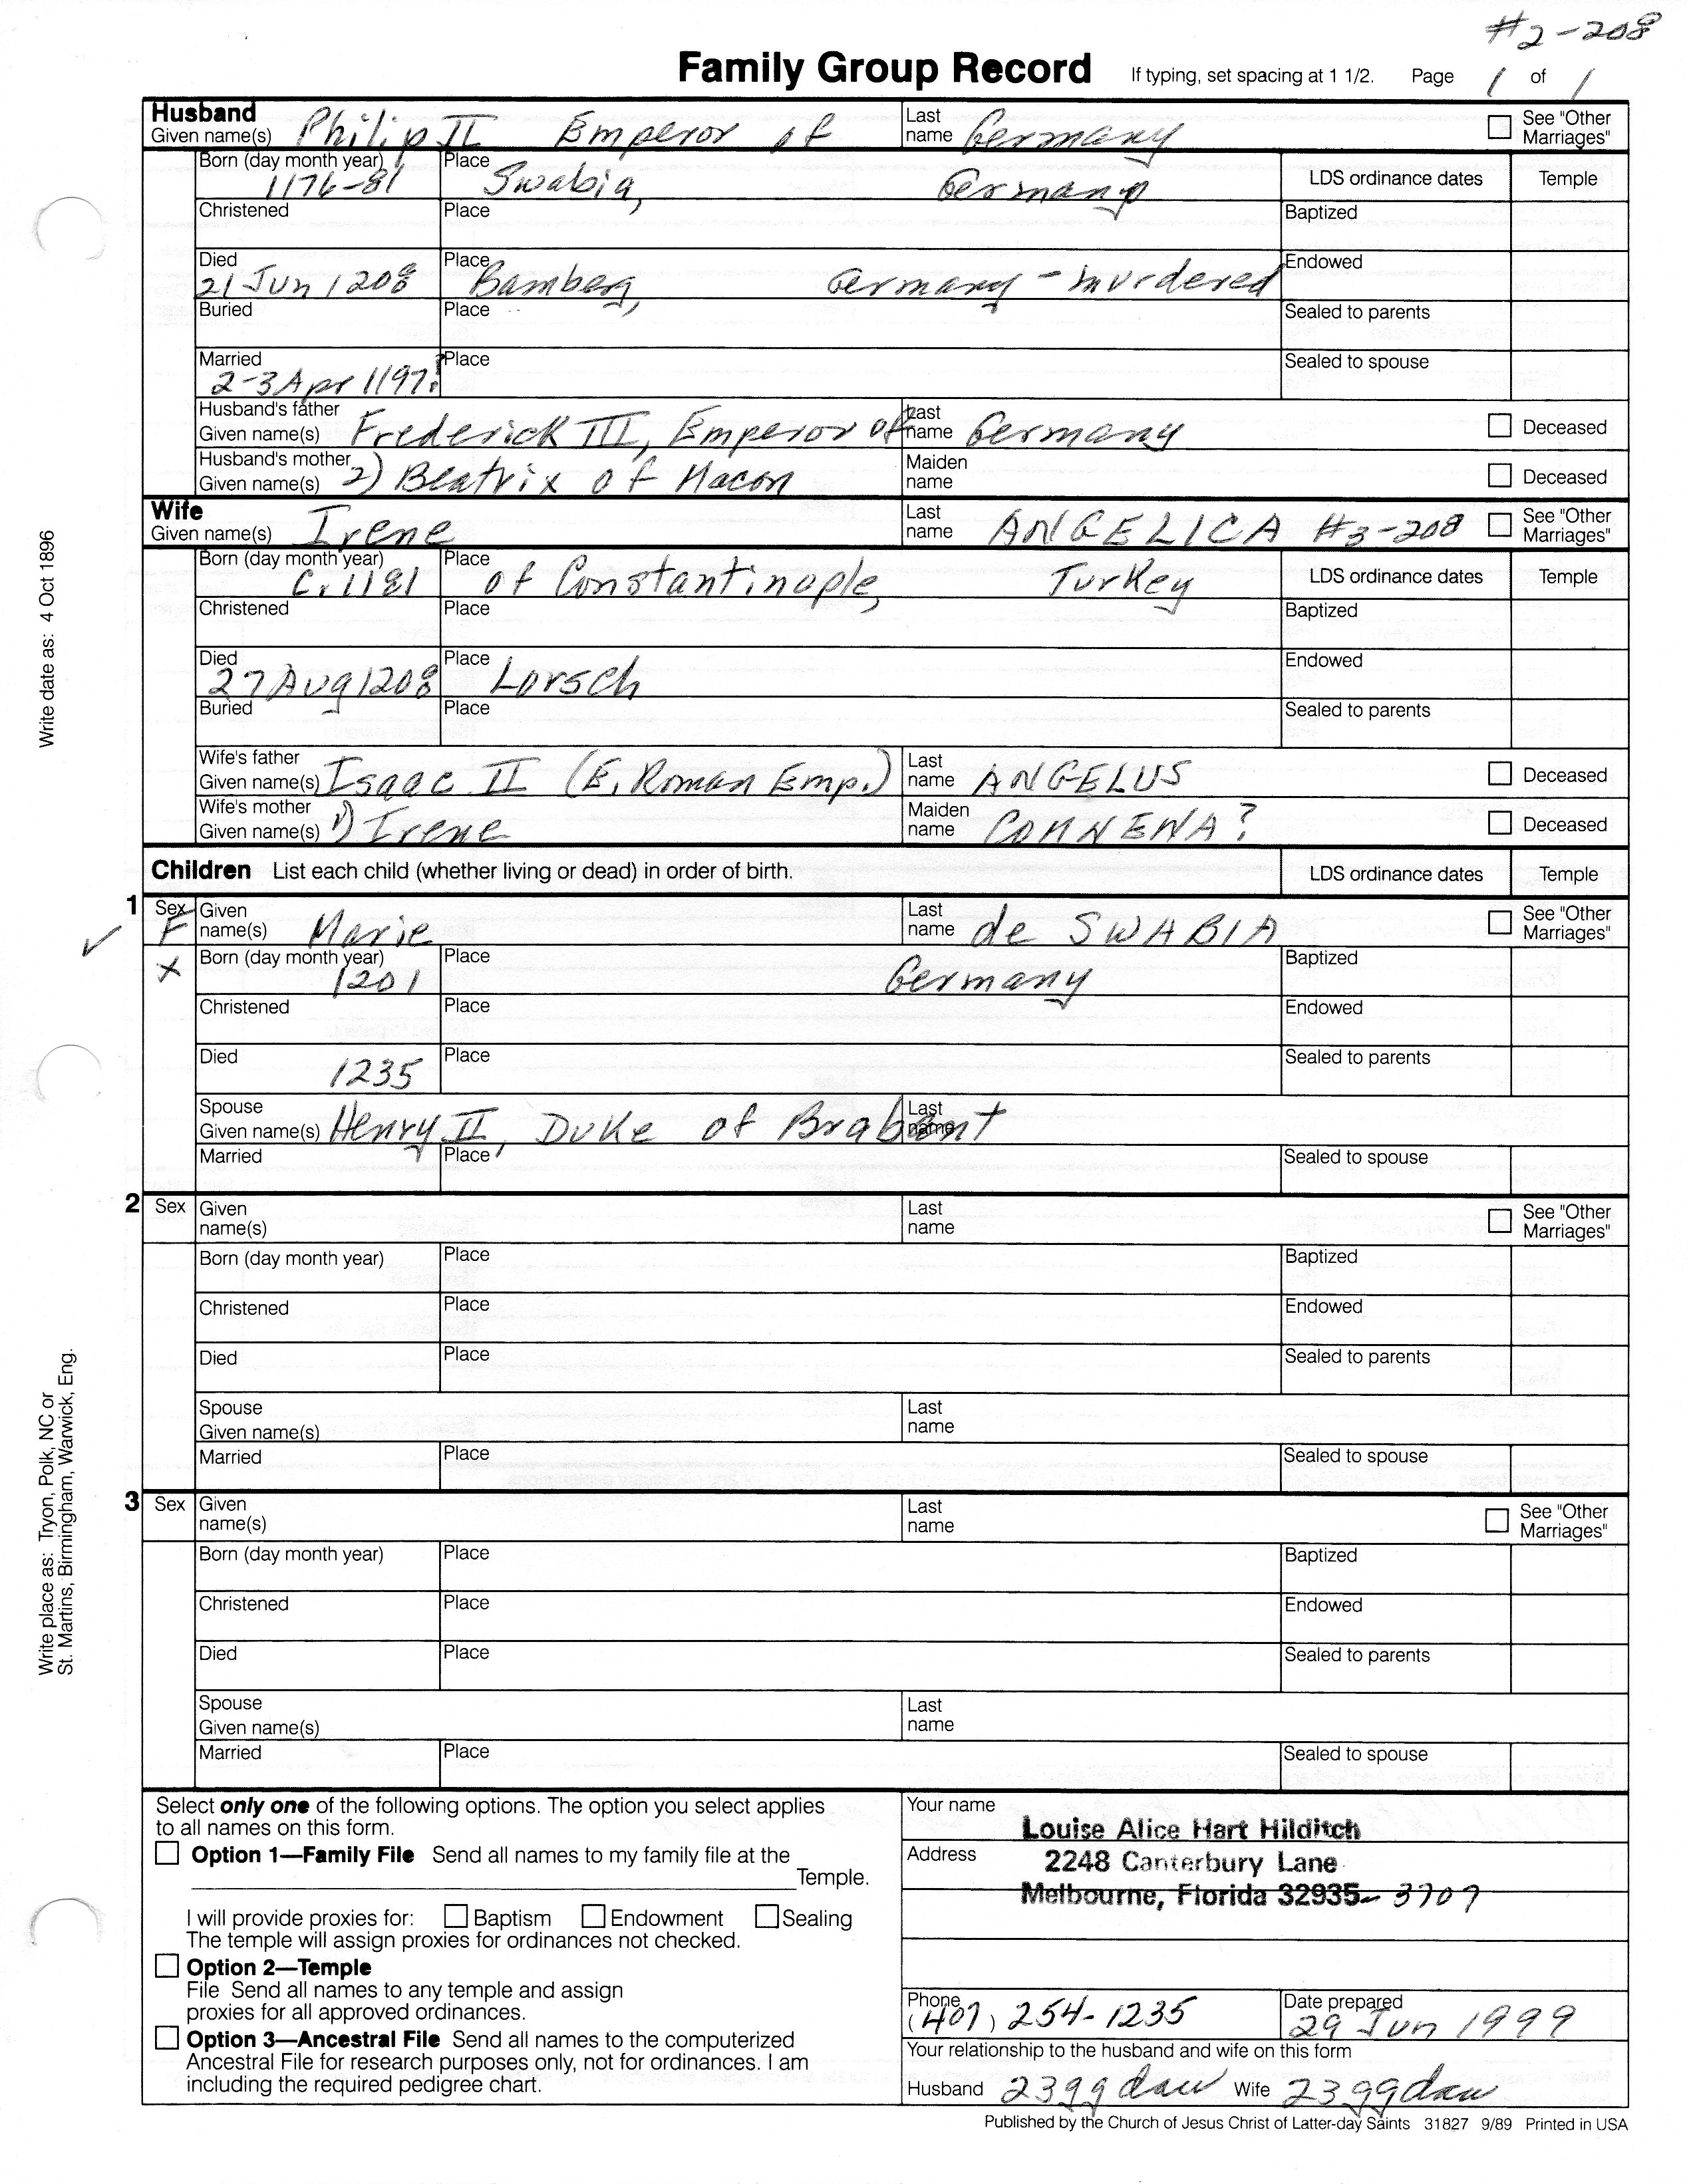 #2-208
Family Group Record If typing, set spacing at 1 1/2. Page 1 of 1
Husband
Given name(s) Philip II Emperor of Last name Germany See "Other Marriages"
Born (day month year) 1176-81 Place Swabia, Germany LDS ordinance dates Temple
Christened Place Baptized
Died 21 Jun 1208 Place Bamberg, Germany - murdered Endowed
Buried Place Sealed to parents
Married 2-3 Apr 1197? Place Sealed to spouse
Husband's father Given name(s) Frederick III, Emperor of Last name Germany Deceased
Husband's mother Given name(s) 2) Beatrix of Macon Maiden name Deceased
Wife
Given name(s) Irene Last name ANGELICA #3-208 See "Other Marriages"
Born (day month year) C. 1181 Place of Constantinople, Turkey LDS ordinance dates Temple
Christened Place Baptized
Died 27 Aug 1208 Place Lorsch Endowed
Buried Place Sealed to parents
Wife's father Given name(s) Isaac II (E. Roman Emp.) Last name ANGELUS Deceased
Wife's mother Given name(s) 1) Irene Maiden name COMNENA? Deceased
Children List each child (whether living or dead) in order of birth. LDS ordinance dates Temple
1 Sex F Given name(s) Marie Last name de SWABIA See "Other Marriages"
X Born (day month year) 1201 Place Germany Baptized
Christened Place Endowed
Died 1235 Place Sealed to parents
Spouse Given name(s) Henry II, Duke of Brabant Last name
Married Place Sealed to spouse
2 Sex Given name(s) Last name See "Other Marriages"
Born (day month year) Place Baptized
Christened Place Endowed
Died Place Sealed to parents
Spouse Given name(s) Last name
Married Place Sealed to spouse
3 Sex Given name(s) Last name See "Other Marriages"
Born (day month year) Place Baptized
Christened Place Endowed
Died Place Sealed to parents
Spouse Given name(s) Last name
Married Place Sealed to spouse
Select only one of the following options. The option you select applies
to all names on this form.
Option 1—Family File Send all names to my family file at the
Temple.
I will provide proxies for: Baptism Endowment Sealing
The temple will assign proxies for ordinances not checked.
Option 2—Temple
File Send all names to any temple and assign
proxies for all approved ordinances.
Option 3—Ancestral File Send all names to the computerized
Ancestral File for research purposes only, not for ordinances. I am
including the required pedigree chart.
Your name Louise Alice Hart Hilditch
Address 2248 Canterbury Lane
Melbourne, Florida 32935-3707
Phone (407) 254-1235 Date prepared 29 Jun 1999
Your relationship to the husband and wife on this form
Husband 23ggdau Wife 23ggdau
Published by the Church of Jesus Christ of Latter-day Saints 31827 9/89 Printed in USA
Write date as: 4 Oct 1896
Write place as: Tryon, Polk, NC or
St. Martins, Birmingham, Warwick, Eng.